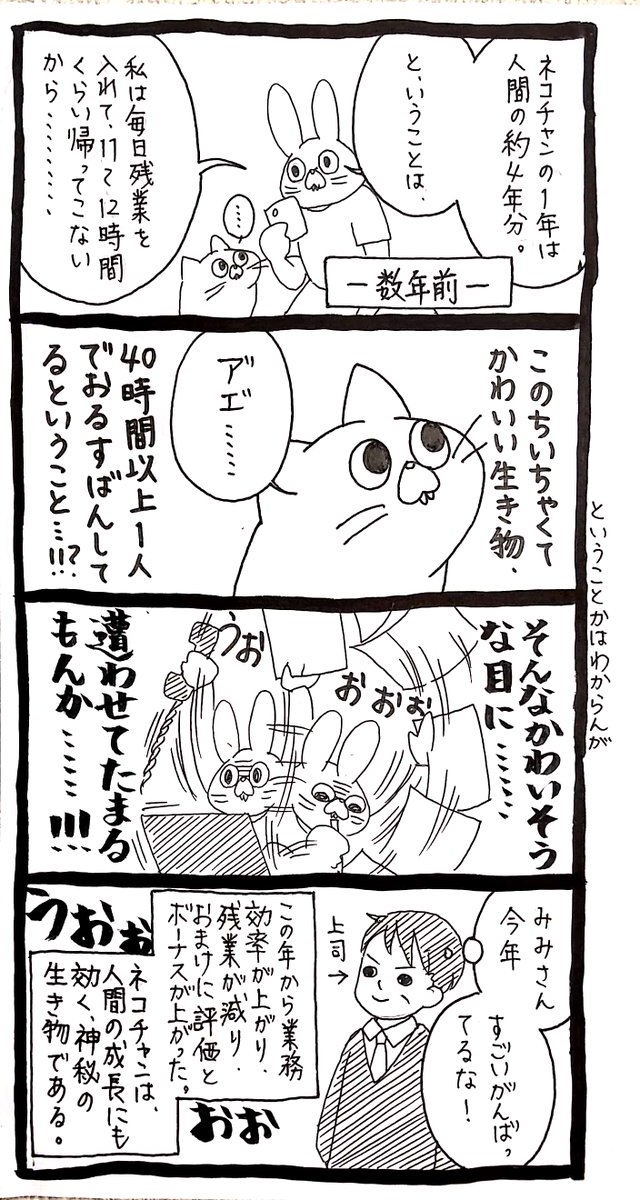 ネコチャンの1年は
人間の約4年分。
と、いうことは、
私は毎日残業を
入れて、11〜12時間
くらい帰ってこない
から………
……
ー数年前ー
このちいちゃくて
かわいい生き物、
アエ……
40時間以上1人
でおるすばんして
るということ…!!?
ということかはわからんが
そんなかわいそう
な目に……
うお
おおお
遭わせてたまる
もんか……!!!
みみさん
今年
すごいがんばっ
てるな!
上司→
この年から業務
効率が上がり、
残業が減り、
おまけに評価と
ボーナスが上がった。
うおお
おお
ネコチャンは、
人間の成長にも
効く、神秘の
生き物である。